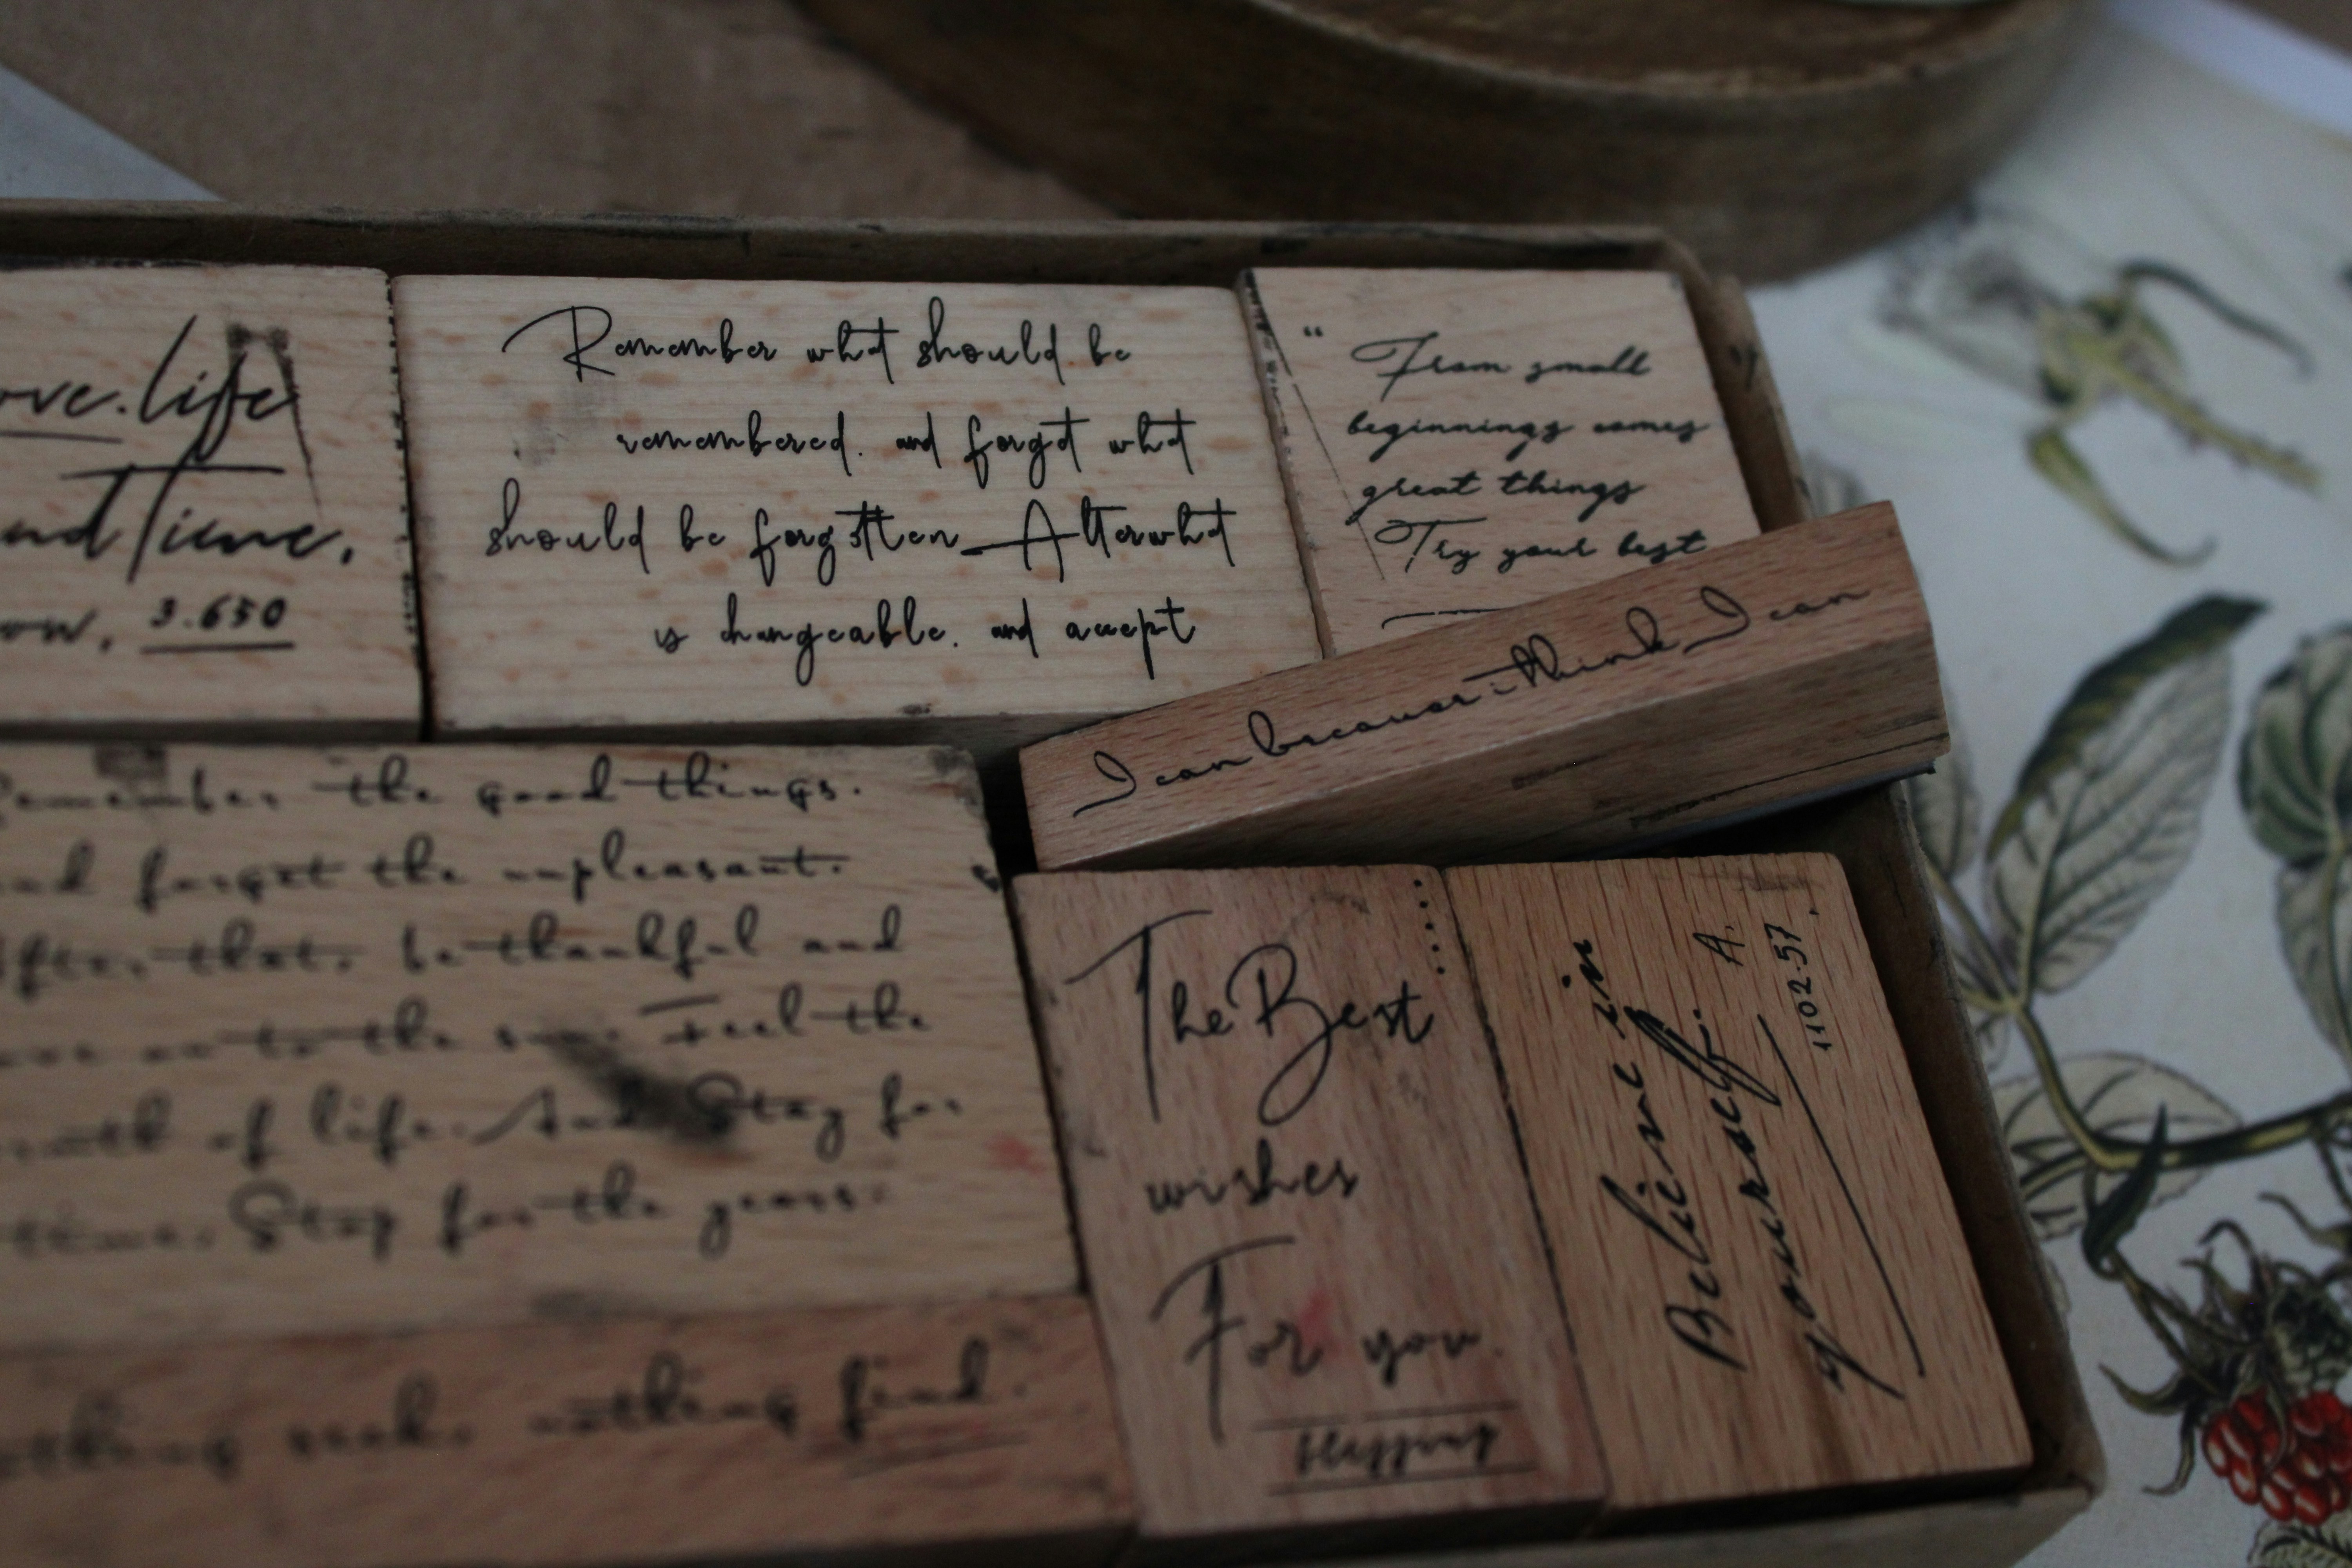 life
Time.
3.650
Remember what should be
remembered. and forget what
should be forgotten Alterwhat
is changeable. and accept
“ From small
beginnings comes
great things
Try your best
I can because i think I can
Remember the good things.
and forget the unpleasant.
After that. be thankful and
to the Feel the
of life. And Stay for
time. Stay for the years.
nothing find.
The Best
wishes
For you.
blessing
Believe in
yourself. A.
1102.57.